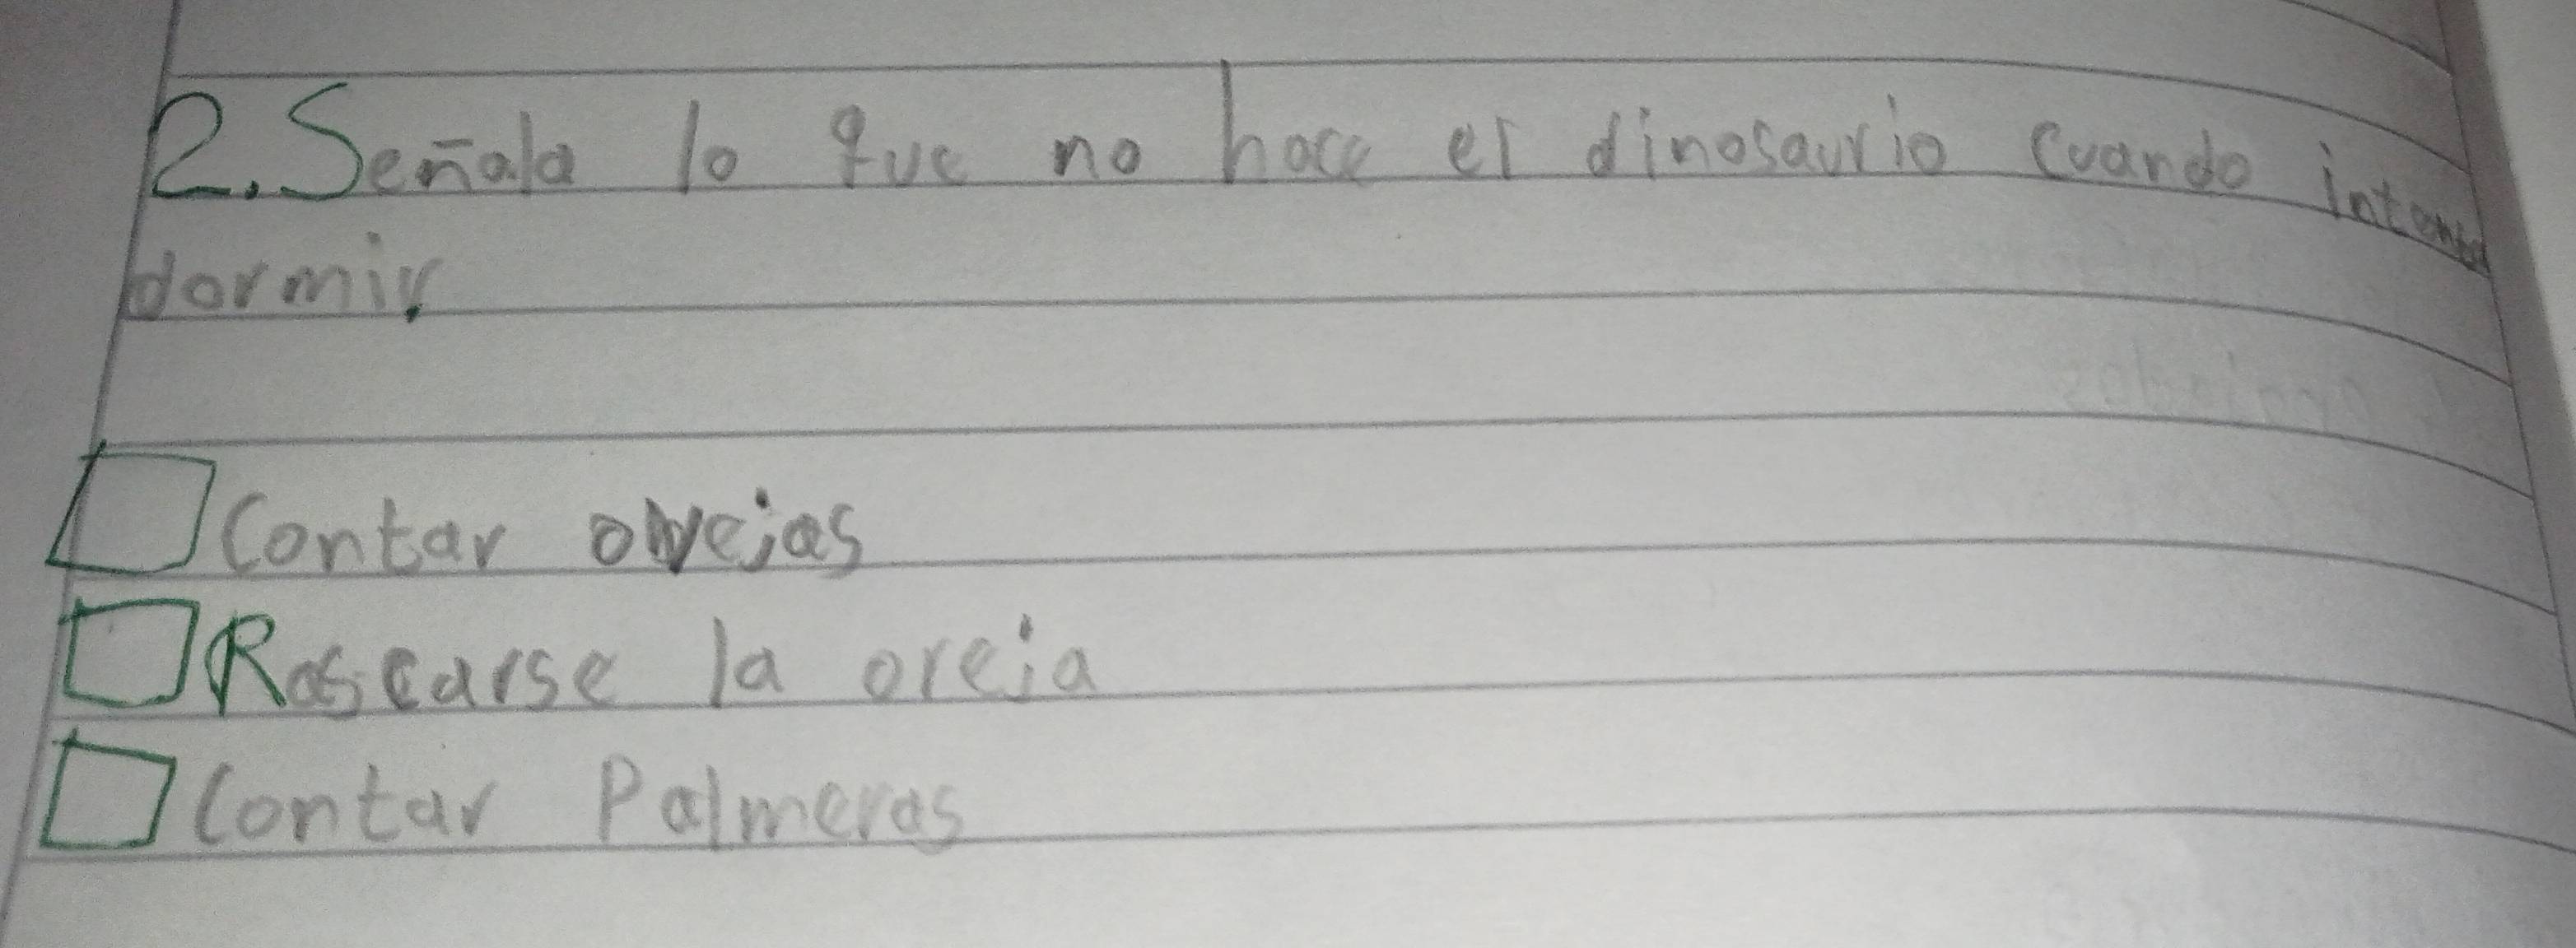 2. Señala lo que no hace el dinosaurio cuando intenta
dormir.
Contar ovejas
Rascarse la oreja
Contar Palmeras